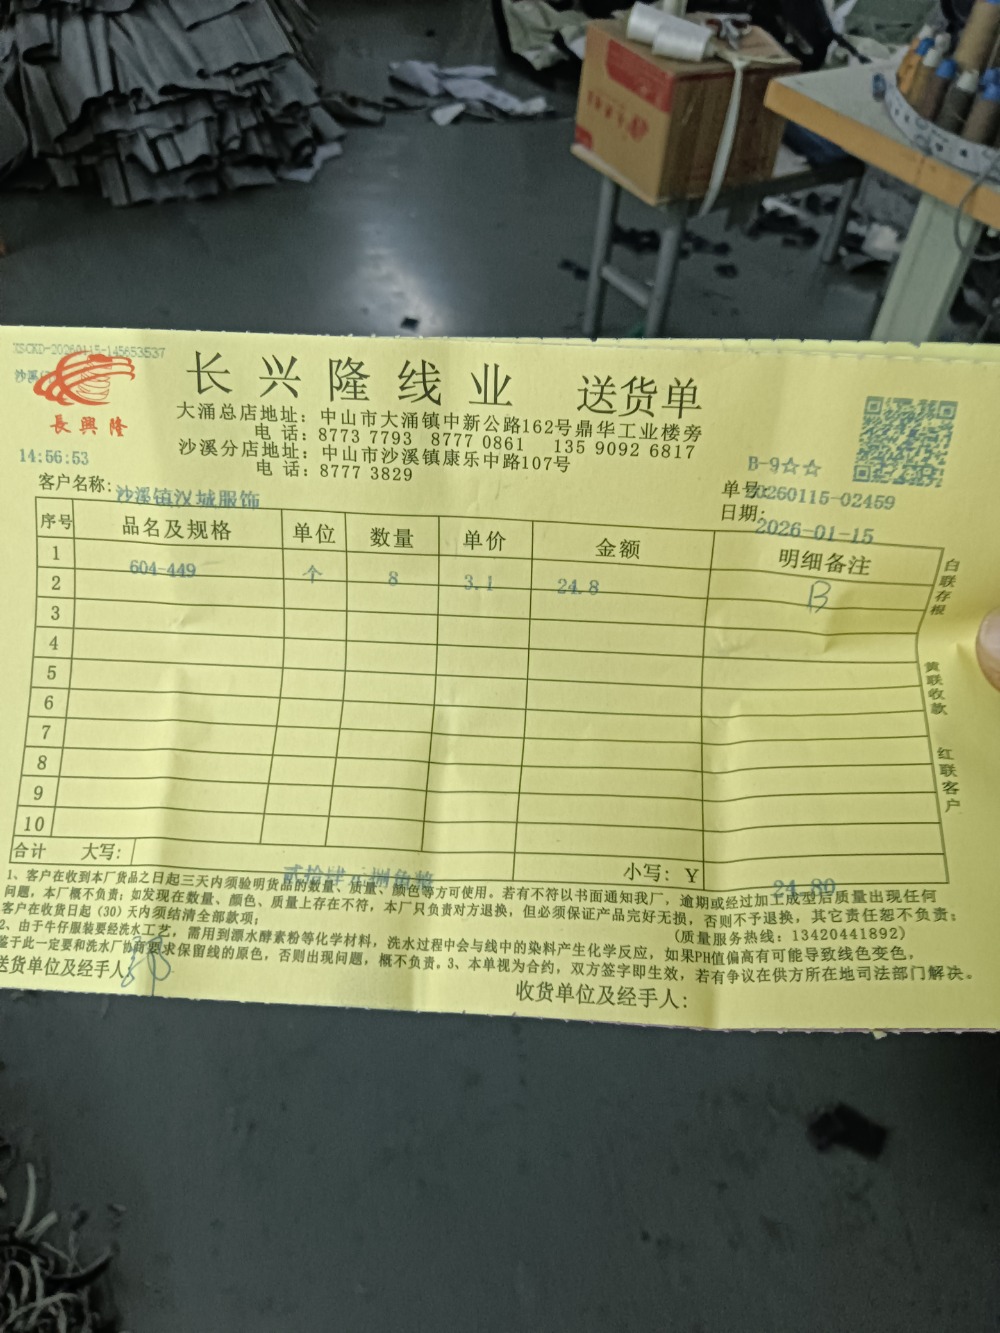 XSCKD-20260115-145653537
沙溪
長興隆
长兴隆线业 送货单
大涌总店地址：中山市大涌镇中新公路162号鼎华工业楼旁
电 话：8773 7793 8777 0861 135 9092 6817
沙溪分店地址：中山市沙溪镇康乐中路107号
电 话：8777 3829
14:56:53
B-9☆☆
客户名称：沙溪镇汉城服饰
单号：20260115-02459
日期：2026-01-15
序号 品名及规格 单位 数量 单价 金额 明细备注
1 604-449 个 8 3.1 24.8 B
2
3
4
5
6
7
8
9
10
合计 大写：贰拾肆 捌角整 小写：Y 24.80
1、客户在收到本厂货品之日起三天内须验明货品的数量、质量、颜色等方可使用。若有不符以书面通知我厂，逾期或经过加工成型后质量出现任何
问题，本厂概不负责；如发现在数量、颜色、质量上存在不符，本厂只负责对方退换，但必须保证产品完好无损，否则不予退换，其它责任恕不负责；
客户在收货日起（30）天内须结清全部款项；
（质量服务热线：13420441892）
2、由于牛仔服装要经洗水工艺，需用到漂水酵素粉等化学材料，洗水过程中会与线中的染料产生化学反应，如果PH值偏高有可能导致线色变色，
鉴于此一定要和洗水厂协商要求保留线的原色，否则出现问题，概不负责。3、本单视为合约，双方签字即生效，若有争议在供方所在地司法部门解决。
送货单位及经手人：
收货单位及经手人：
白联存根
黄联收款
红联客户